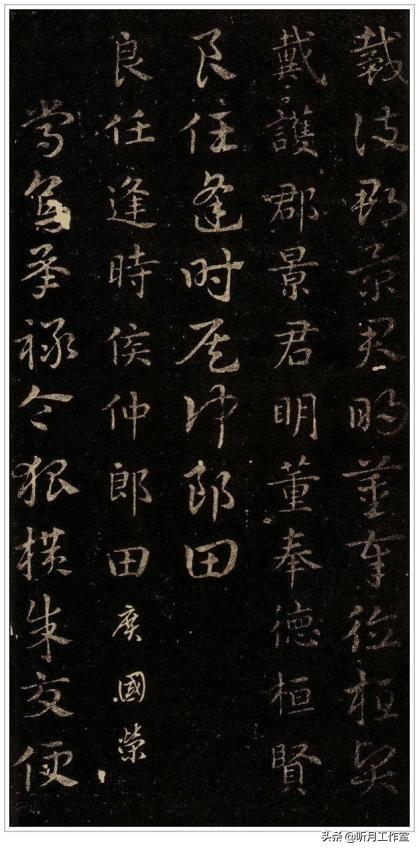 戴護郡景君明董奉德桓賢
戴護郡景君明董奉德桓賢
良任逢時侯仲郎田
良任逢時侯仲郎田廣國榮
常烏承祿令狐橫朱交便
头条 @听月工作室